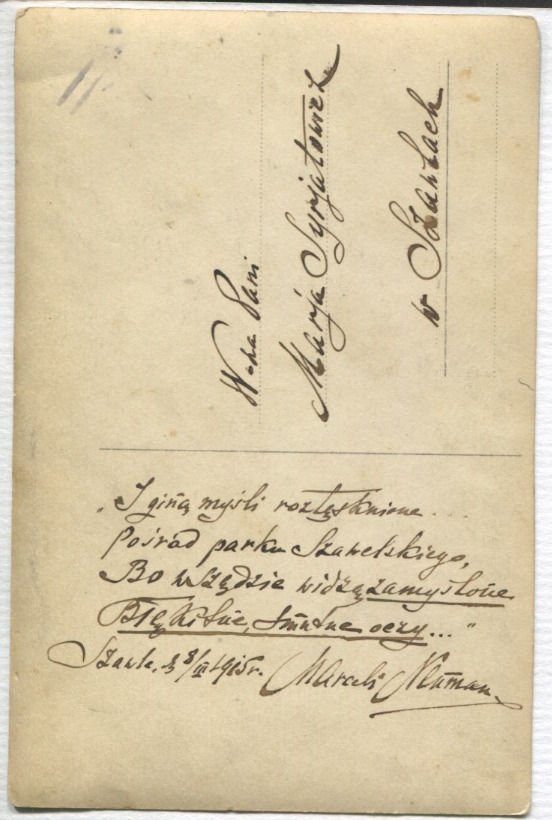 W-na Pani
Marja Syrjatowicz
w Szawlach
„I giną myśli roztęsknione...
Pośród parku Szawelskiego,
Bo wszędzie widzą zamyślone
Błękitne, smutne oczy..."
Szawle, 1915r. Marceli Neuman